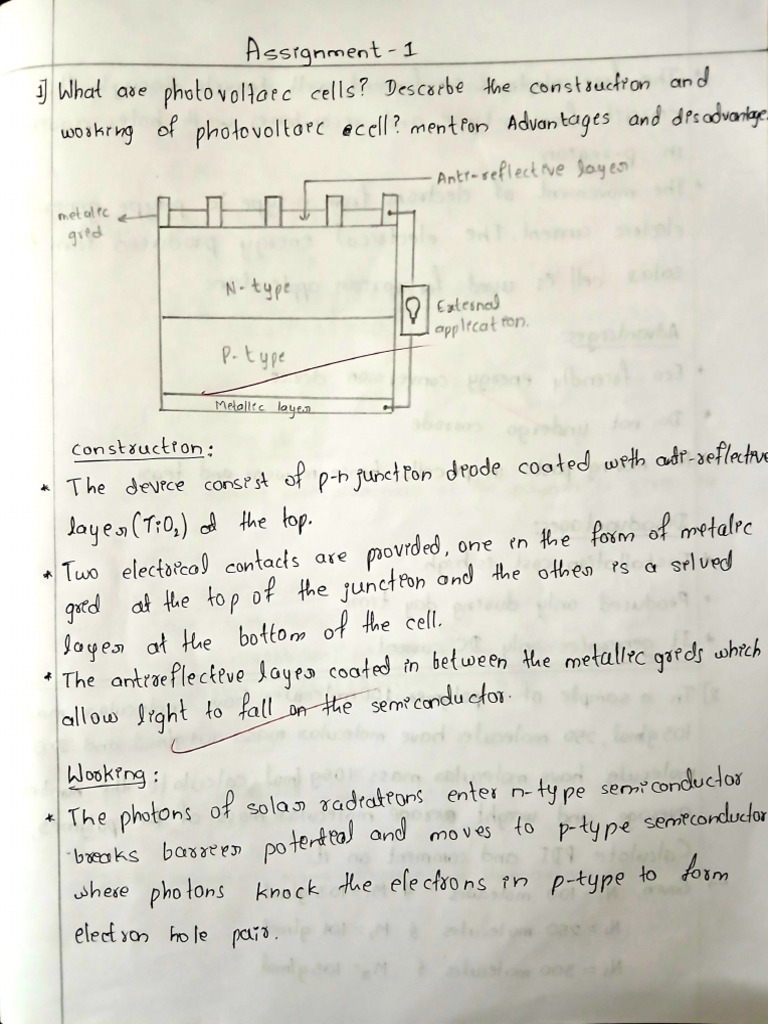 Assignment - 1
1] What are photovoltaic cells? Describe the construction and
working of photovoltaic cell? mention Advantages and disadvantage.
Anti-reflective layer
metalic
grid
N-type
External
application.
P-type
Metallic layer
Construction:
* The device consist of p-n junction diode coated with anti-reflective
layer (TiO₂) at the top.
* Two electrical contacts are provided, one in the form of metalic
grid at the top of the junction and the other is a silved
layer at the bottom of the cell.
* The antireflective layer coated in between the metallic grids which
allow light to fall on the semiconductor.
Working:
* The photons of solar radiations enter n-type semiconductor
breaks barrier potential and moves to p-type semiconductor
where photons knock the electrons in p-type to form
electron hole pair.